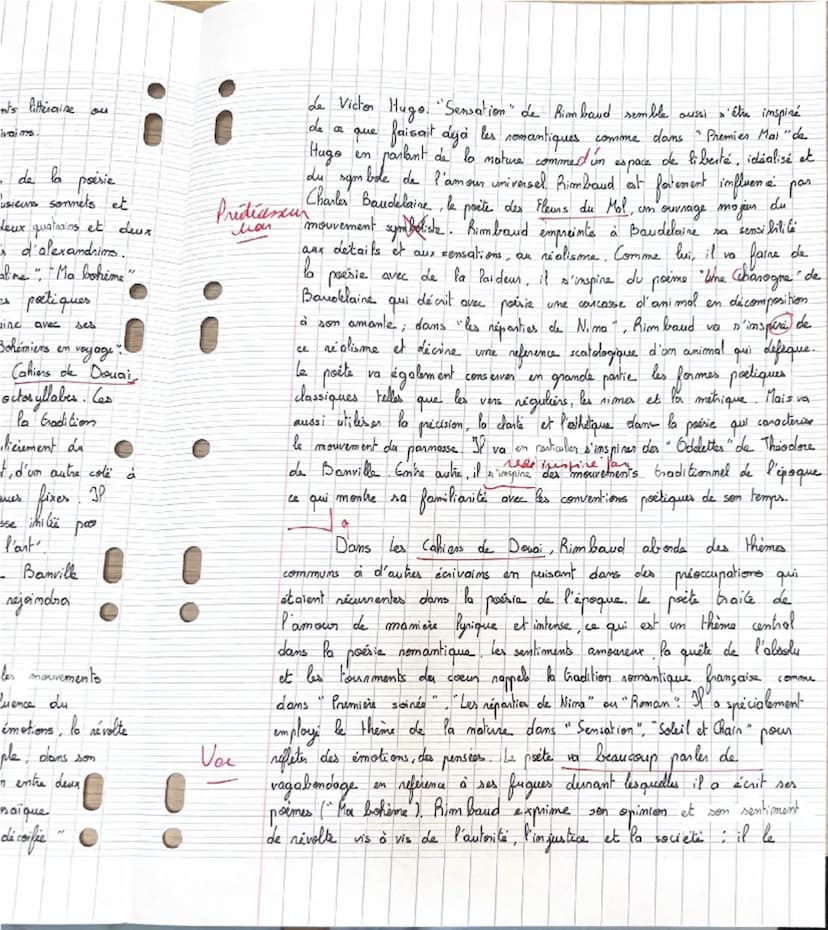 nts littéraire ou
ivains.
de la poésie
usieurs sonnets et
deux quatrains et deux
d'alexandrins.
"Ma bohème"
es poétiques
avec ses
Bohémiens en voyage".
Cahiers de Douai,
octosyllabes. Ces
la tradition
lièrement du
t, d'un autre coté à
fixes. Il
sse initié par
l'art".
Banville
rejoindra
les mouvements
luence du
émotions, la révolte
ple, dans son
n entre deux
décoifée"
de Victor Hugo. "Sensation" de Rimbaud semble aussi s'être inspiré
de ce que faisait déjà les romantiques comme dans "Premier Mai" de
Hugo en parlant de la nature comme d'un espace de liberté, idéalisé et
du symbole de l'amour universel. Rimbaud est fortement influencé par
Charles Baudelaire, le poète des Fleurs du Mal, un ouvrage majeur du
Prédécesseur
mouvement symboliste. Rimbaud empreinte à Baudelaire sa sensibilité
aux détails et aux sensations, au réalisme. Comme lui, il va faire de
la poésie avec de la laideur, il s'inspire du poème "Une Charogne" de
Baudelaire qui décrit avec poésie une carcasse d'animal en décomposition
à son amante ; dans "les réparties de Nina", Rimbaud va s'inspiré de
ce réalisme et décrire une reference scatologique d'un animal qui défèque.
Le poète va également conserver en grande partie les formes poétiques
classiques telles que les vers réguliers, les rimes et la métrique. Mais va
aussi utiliser la précision, la clarté et l'esthétique dans la poésie qui caractérise
le mouvement du parnasse. Il va en particulier s'inspirer des "Odelettes" de Théodore
de Banville. Entre autre, il s'inspire des mouvements traditionnel de l'époque
ce qui montre sa familiarité avec les conventions poétiques de son temps.
Dans les Cahiers de Douai, Rimbaud aborde des thèmes
communs à d'autres écrivains en puisant dans des préoccupations qui
étaient récurrentes dans la poésie de l'époque. Le poète traite de
l'amour de manière lyrique et intense, ce qui est un thème central
dans la poésie romantique. Les sentiments amoureux, la quête de l'absolu
et les tourments du coeur rappels la tradition romantique française comme
dans "Première soirée", "Les réparties de Nina" ou "Roman". Il a spécialement
employé le thème de la nature dans "Sensation", "Soleil et Chair" pour
refléter des émotions, des pensées. Le poète va beaucoup parler de
vagabondage en référence à ses fugues durant lesquelles il a écrit ses
poèmes ("Ma bohème"). Rimbaud exprime son opinion et son sentiment
de révolte vis à vis de l'autorité, l'injustice et la société ; il le